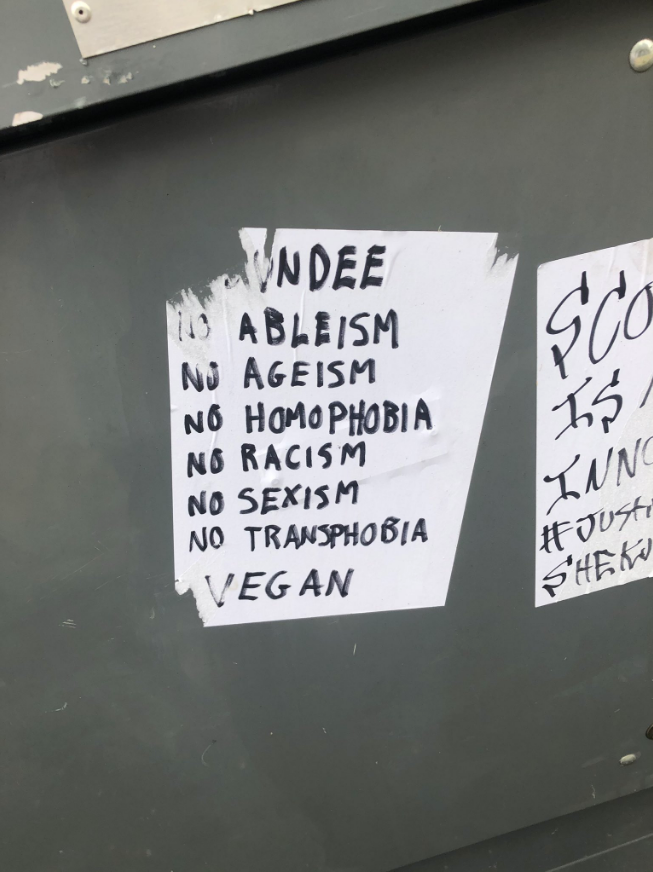 UNDEE
NO ABLEISM
NO AGEISM
NO HOMOPHOBIA
NO RACISM
NO SEXISM
NO TRANSPHOBIA
VEGAN
SCO
IS
INNO
#JUSTI
SHEKU